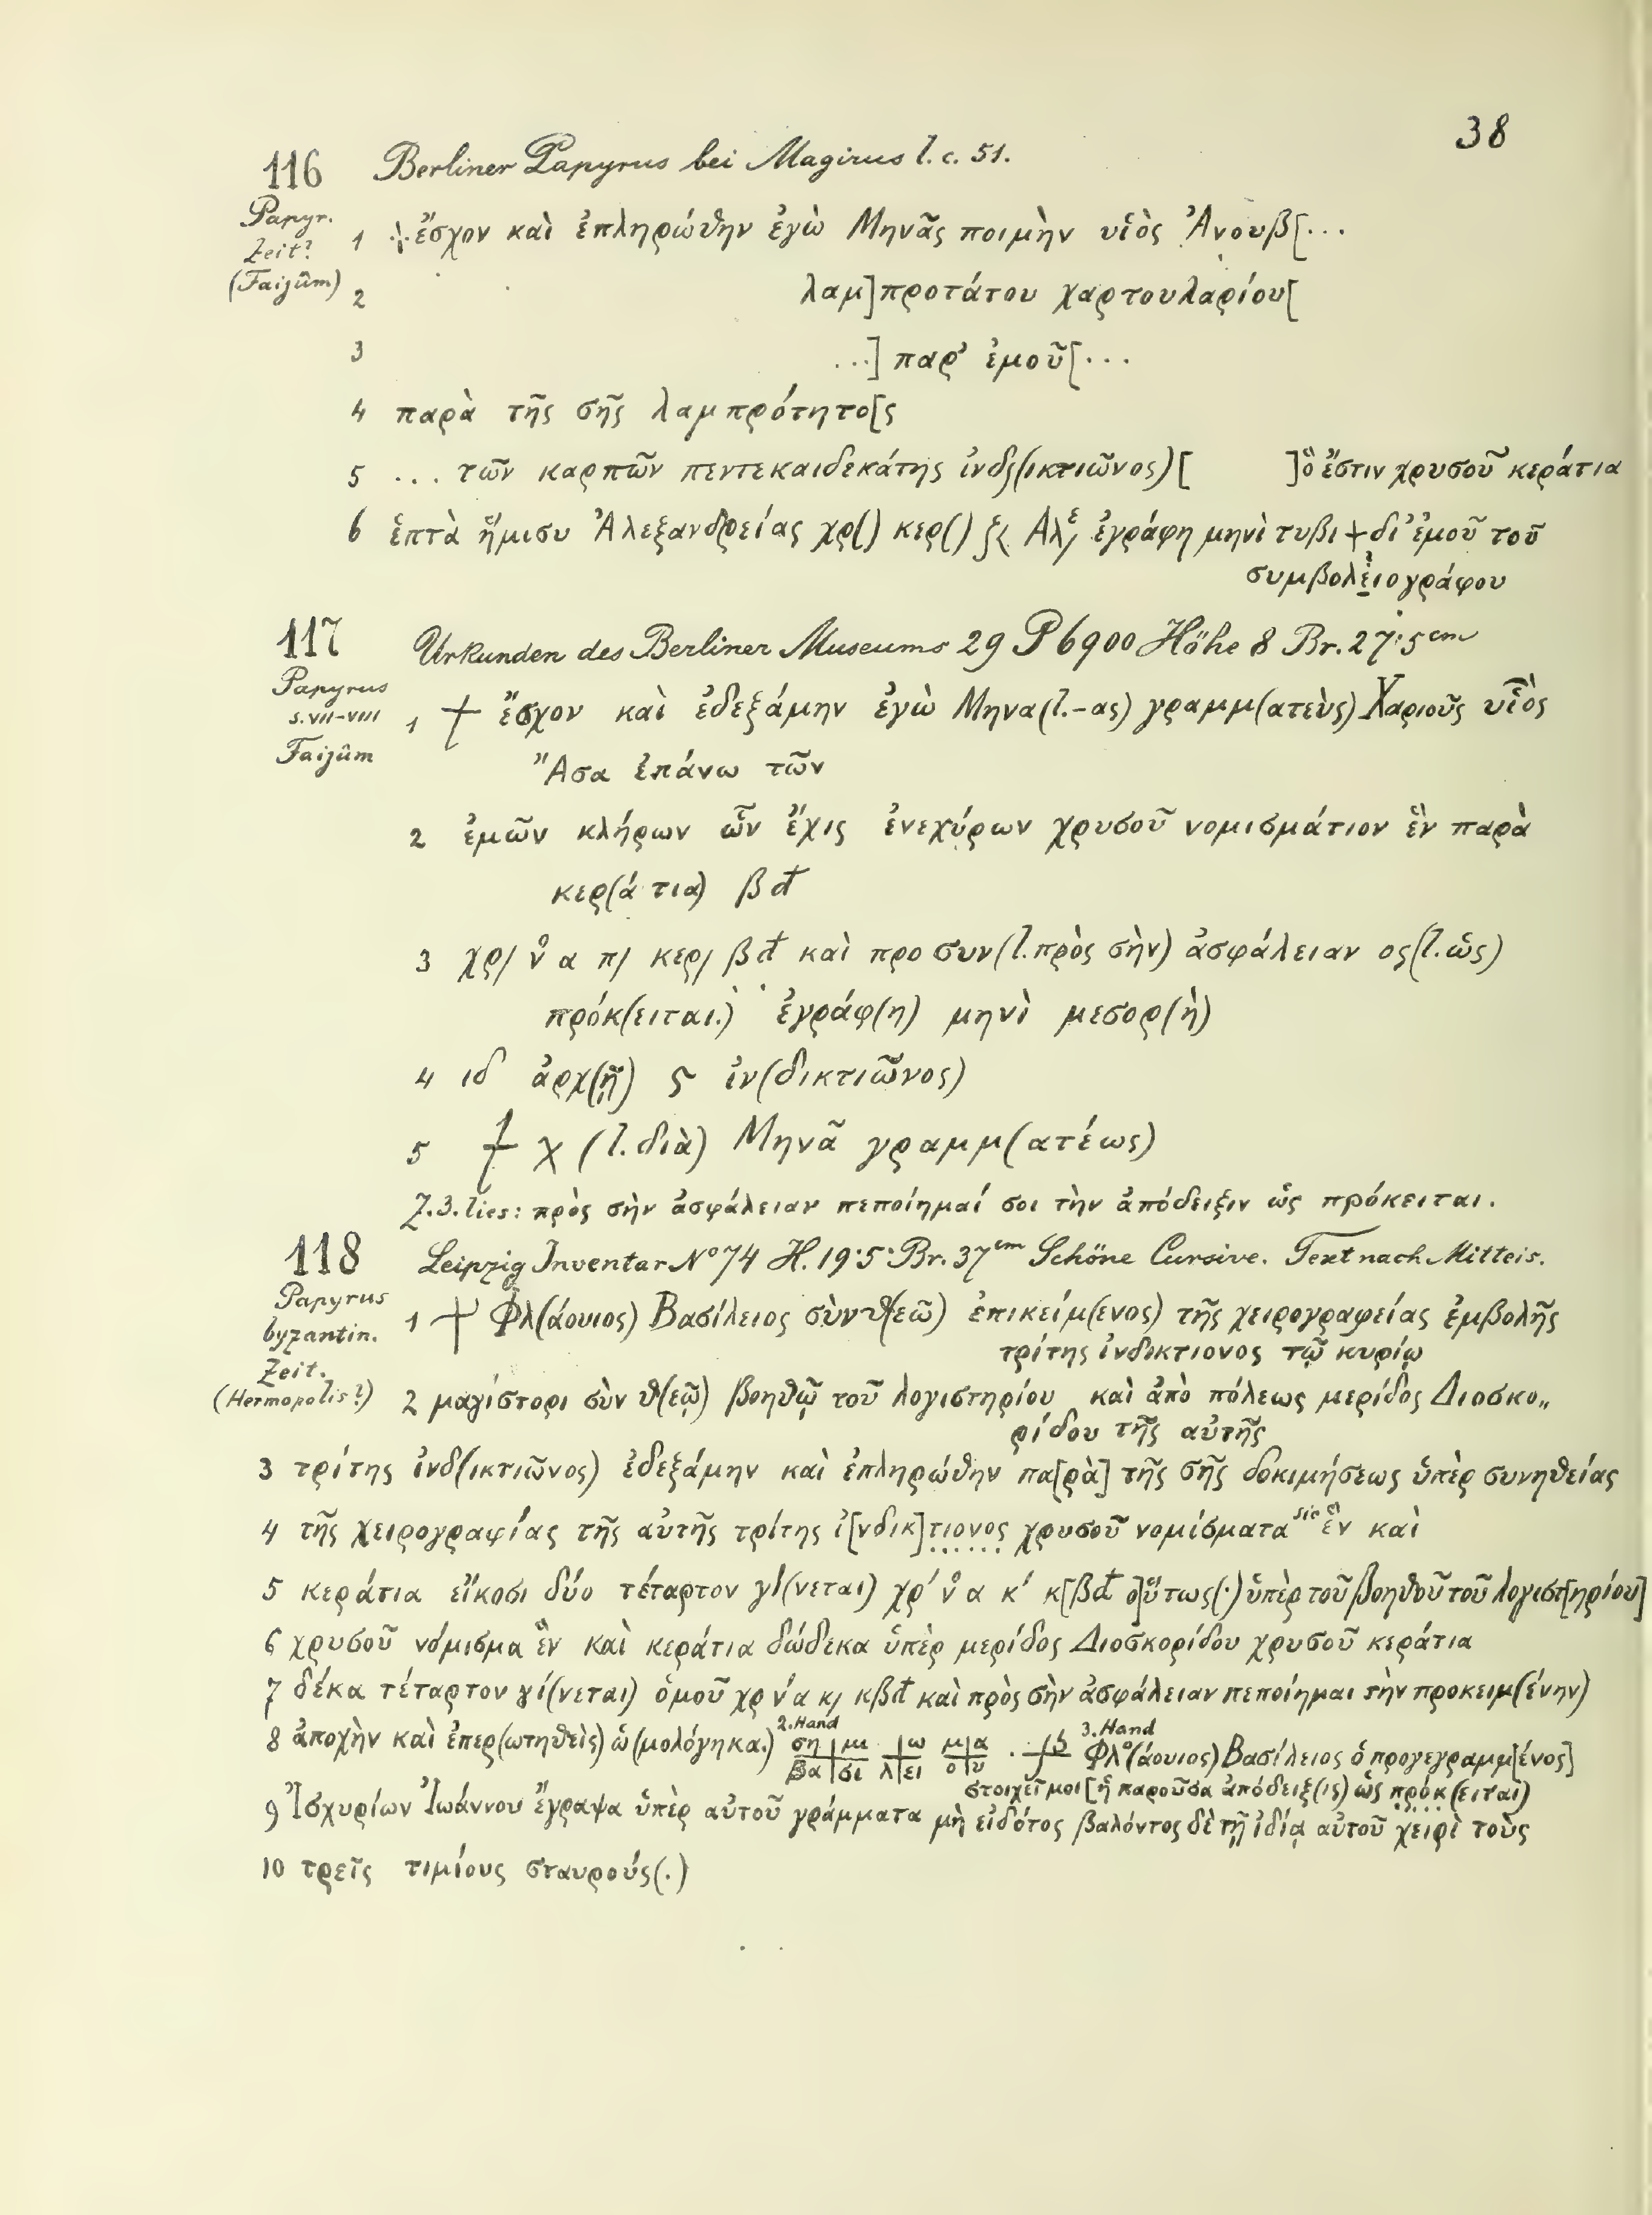 38
116 Berliner Papyrus bei Magirus l. c. 51.
Papyr.
Zeit?
(Faijûm)
1 ⳨ ἔσχον καὶ ἐπληρώθην ἐγὼ Μηνᾶς ποιμὴν υἱὸς Ἀνουβ[...
2 λαμ]προτάτου χαρτουλαρίου[
3 ...] παρ’ ἐμοῦ[...
4 παρὰ τῆς σῆς λαμπρότητο[ς
5 ... τῶν καρπῶν πεντεκαιδεκάτης ἰνδς(ικτιῶνος)[ ]ὅ ἔστιν χρυσοῦ κεράτια
6 ἑπτὰ ἥμισυ Ἀλεξανδρείας χρ() κερ() ἐγράφη μηνὶ τυβι + δι’ ἐμοῦ τοῦ
συμβολειογράφου
117 Urkunden des Berliner Museums 29 P 6900 Höhe 8 Br. 27·5 cm
Papyrus
s. VII-VIII
Faijûm
1 † ἔσχον καὶ ἐδεξάμην ἐγὼ Μηνα(l.-ας) γραμμ(ατεὺς) Χαριοῦς υἱὸς
Ἄσα ἐπάνω τῶν
2 ἐμῶν κλήρων ὧν ἔχις ἐνεχύρων χρυσοῦ νομισμάτιον ἓν παρὰ
κερ(άτια) β đ
3 χρ/ ν̊ α π/ κερ/ β đ καὶ προ συν(l. πρὸς σὴν) ἀσφάλειαν ος(l. ὡς)
πρόκ(ειται.) ἐγράφ(η) μηνὶ μεσορ(ὴ)
4 ιδ ἀρχ(ῇ) ς ἰν(δικτιῶνος)
5 † χ (l. διὰ) Μηνᾶ γραμμ(ατέως)
Z. 3. lies: πρὸς σὴν ἀσφάλειαν πεποίημαί σοι τὴν ἀπόδειξιν ὡς πρόκειται.
118 Leipzig Inventar No 74 H. 19·5· Br. 37 cm Schöne Cursive. Text nach Mitteis.
Papyrus
byzantin.
Zeit.
(Hermopolis?)
1 † Φλ(άουιος) Βασίλειος σὺν θ(εῶ) ἐπικείμ(ενος) τῆς χειρογραφείας ἐμβολῆς
τρίτης ἰνδικτιονος τῷ κυρίῳ
2 μαγίστορι σὺν θ(εῷ) βοηθῷ τοῦ λογιστηρίου καὶ ἀπὸ πόλεως μερίδος Διοσκο„
ρίδου τῆς αὐτῆς
3 τρίτης ἰνδ(ικτιῶνος) ἐδεξάμην καὶ ἐπληρώθην πα[ρὰ] τῆς σῆς δοκιμήσεως ὑπὲρ συνηθείας
4 τῆς χειρογραφίας τῆς αὐτῆς τρίτης ἰ[νδικ]τιονος χρυσοῦ νομίσματα sic ἓν καὶ
5 κεράτια εἴκοσι δύο τέταρτον γί(νεται) χρ’ ν̊ α κ’ κ[β đ ο]ὕτως(·) ὑπὲρ τοῦ βοηθοῦ τοῦ λογιστ[ηρίου]
6 χρυσοῦ νόμισμα ἓν καὶ κεράτια δώδεκα ὑπὲρ μερίδος Διοσκορίδου χρυσοῦ κεράτια
7 δέκα τέταρτον γί(νεται) ὁμοῦ χρ ν’ α κ/ κβ đ καὶ πρὸς σὴν ἀσφάλειαν πεποίημαι τὴν προκειμ(ένην)
8 ἀποχὴν καὶ ἐπερ(ωτηθεὶς) ὡ(μολόγηκα.) 2. Hand ση|μι |ω μ|α 3. Hand Φλ̊(άουιος) Βασίλειος ὁ προγεγραμμ[ένος]
βα|σι λ|ει ο|υ
στοιχεῖ μοι [ἡ παροῦσα ἀπόδειξ(ις) ὡς πρόκ(ειται)
9 Ἰσχυρίων Ἰωάννου ἔγραψα ὑπὲρ αὐτοῦ γράμματα μὴ εἰδότος βαλόντος δὲ τῇ ἰδίᾳ αὐτοῦ χειρὶ τοὺς
10 τρεῖς τιμίους σταυρούς(.)